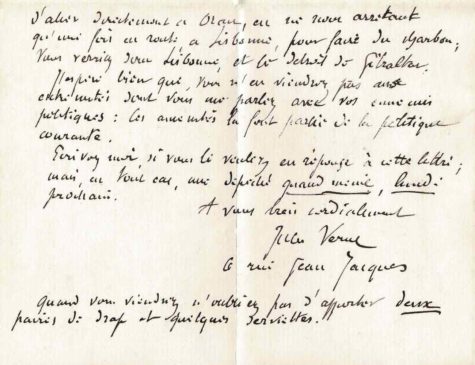 d'aller directement à Oran, en ne nous arrêtant
qu'une fois en route, à Lisbonne, pour faire du charbon;
Vous verriez donc Lisbonne, et le détroit de Gibraltar.
J'espère bien que vous n'en viendrez pas aux
extrémités dont vous me parlez avec vos ennemis
politiques: les aménités font partie de la politique
courante.
Écrivez moi, si vous le voulez en réponse à cette lettre;
mais, en tout cas, une dépêche quand même, lundi
prochain.
A vous bien cordialement
Jules Verne
6 rue Jean Jacques
Quand vous viendrez n'oubliez pas d'apporter deux
paires de drap et quelques serviettes.